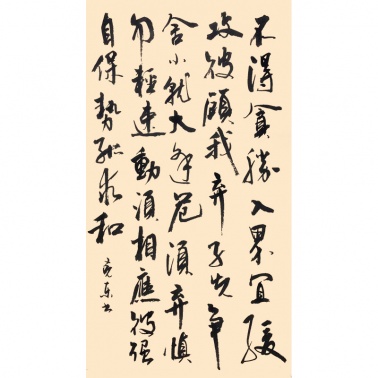 不得貪勝入界宜緩
攻彼顧我弃子先争
舍小就大逢危須弃慎
勿輕速動須相應彼强
自保勢孤求和
东书